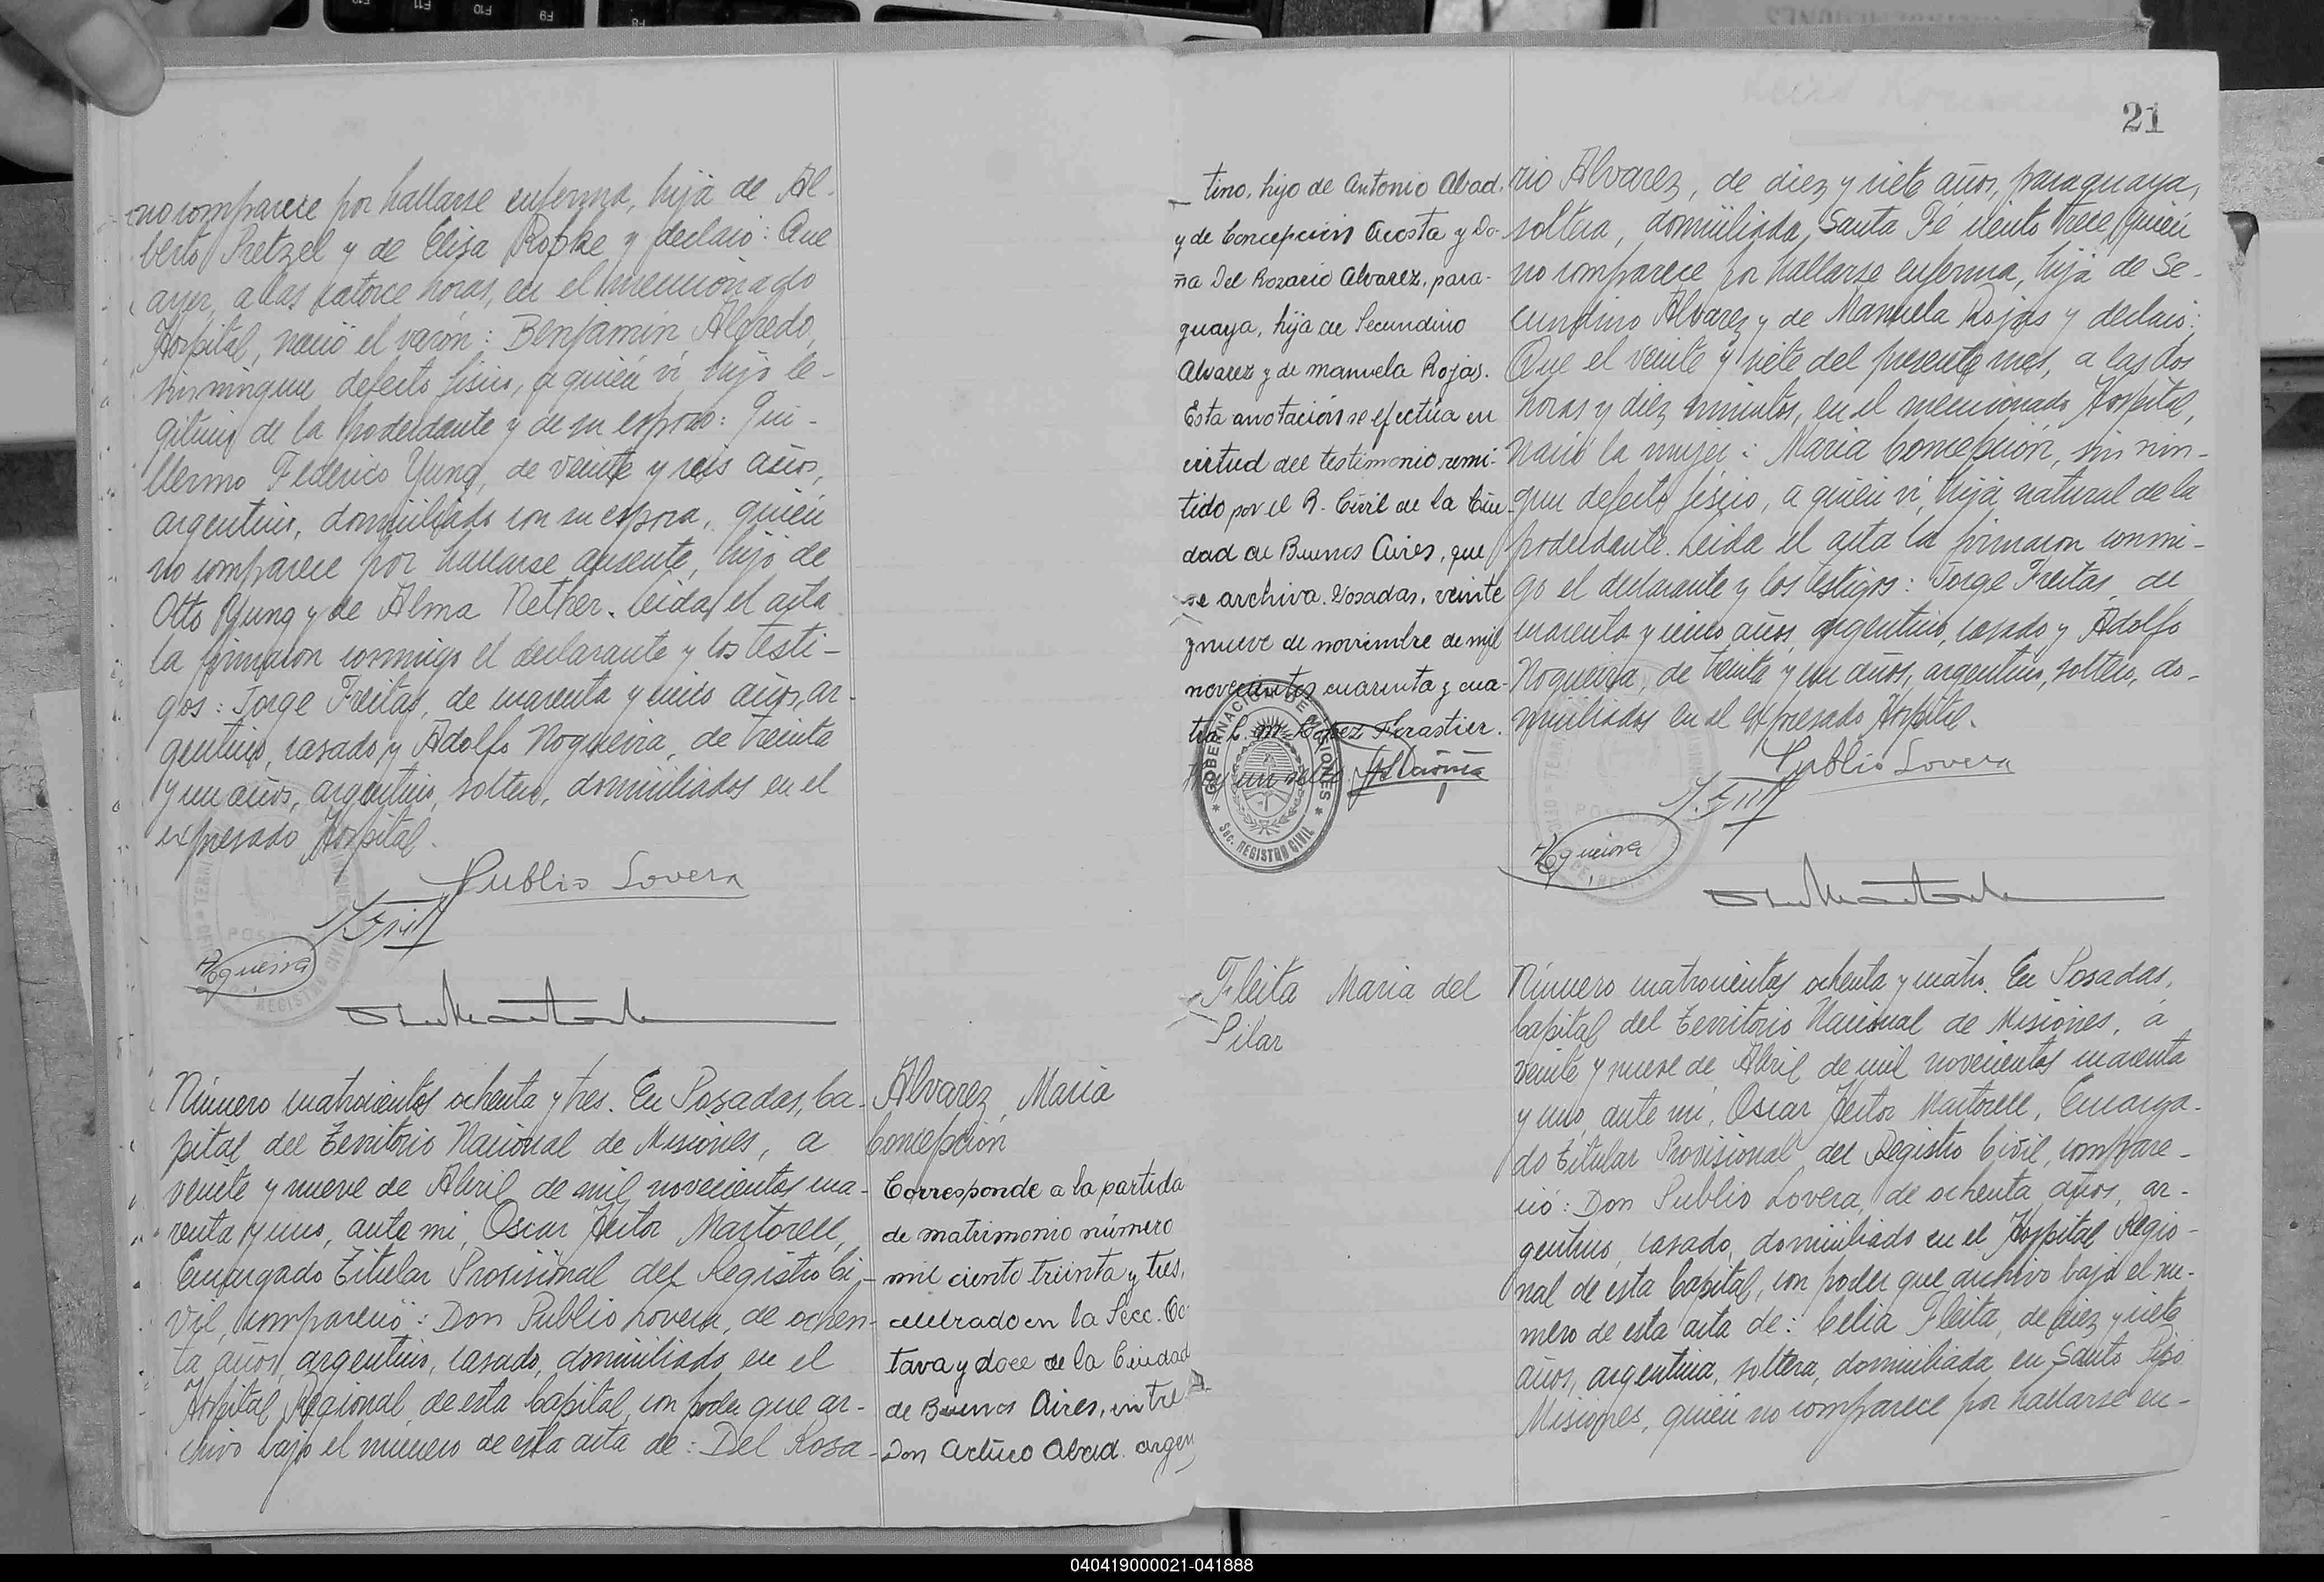 no comparece por hallarse enferma, hija de Al-
berto Pretzel y de Elisa Ropke y declaró: Que
ayer, a las catorce horas, en el mencionado
Hospital, nació el varón: Benjamin Alfredo,
sin ningun defecto fisico, a quién vi, hijo le-
gitimo de la poderdante y de su esposo: Gui-
llermo Federico Yung, de veinte y seis años,
argentino, domiciliado con su esposa, quién
no comparece por hallarse ausente, hijo de
Otto Yung y de Alma Nether. Leida el acta
la firmaron conmigo el declarante y los testi-
gos: Jorge Freitas, de cuarenta y cinco años, ar-
gentino, casado y Adolfo Nogueira, de treinta
y un años, argentino, soltero, domiciliados en el
expresado Hospital.
Publio Lovera
Nogueira
Número cuatrocientos ochenta y tres. En Posadas, Ca-
pital del Territorio Nacional de Misiones, a
veinte y nueve de Abril de mil novecientos cua-
renta y uno, ante mi, Oscar Hector Martorell,
Encargado Titular Provisional del Registro Ci-
vil, compareció: Don Publio Lovera, de ochen-
ta años, argentino, casado, domiciliado en el
Hospital Regional de esta Capital, con poder que ar-
chivo bajo el numero de esta acta de: Del Rosa-
Alvarez, Maria
Concepción
Corresponde a la partida
de matrimonio número
mil ciento treinta y tres,
celebrado en la Secc. Oc-
tava y doce de la Ciudad
de Buenos Aires, entre
Don Arturo Abad. argen
21
tino, hijo de Antonio Abad.
y de Concepción Acosta y Do-
ña Del Rosario Alvarez, para-
guaya, hija de Secundino
Alvarez y de Manuela Rojas.
Esta anotación se efectúa en
virtud del testimonio remi-
tido por el R. Civil de la Ciu-
dad de Buenos Aires, que
se archiva. Posadas, veinte
y nueve de noviembre de mil
novecientos cuarenta y cua-
tro. L. M. Lopez Forastier.
Hay un sello.
GOBERNACION DE MISIONES
Sec. REGISTRO CIVIL
rio Alvarez, de diez y siete años, paraguaya,
soltera, domiciliada, Santa Fé ciento trece, quién
no comparece por hallarse enferma, hija de Se-
cundino Alvarez y de Manuela Rojas y declaró:
Que el veinte y siete del presente mes, a las dos
horas y diez minutos, en el mencionado Hospital,
nació la mujer: Maria Concepción, sin nin-
gun defecto fisico, a quién vi, hija natural de la
poderdante. Leida el acta la firmaron conmi-
go el declarante y los testigos: Jorge Freitas, de
cuarenta y cinco años, argentino, casado y Adolfo
Nogueira, de treinta y un años, argentino, soltero, do-
miciliados en el expresado Hospital.
Publio Lovera
Nogueira
Fleita Maria del
Pilar
Número cuatrocientos ochenta y cuatro. En Posadas,
Capital del Territorio Nacional de Misiones, a
veinte y nueve de Abril de mil novecientos cuarenta
y uno, ante mi, Oscar Hector Martorell, Encarga-
do Titular Provisional del Registro Civil, compare-
ció: Don Publio Lovera, de ochenta años, ar-
gentino, casado, domiciliado en el Hospital Regio-
nal de esta Capital, con poder que archivo bajo el nu-
mero de esta acta de: Celia Fleita, de diez y siete
años, argentina, soltera, domiciliada en Santo Pipo
Misiones, quién no comparece por hallarse en-
040419000021-041888